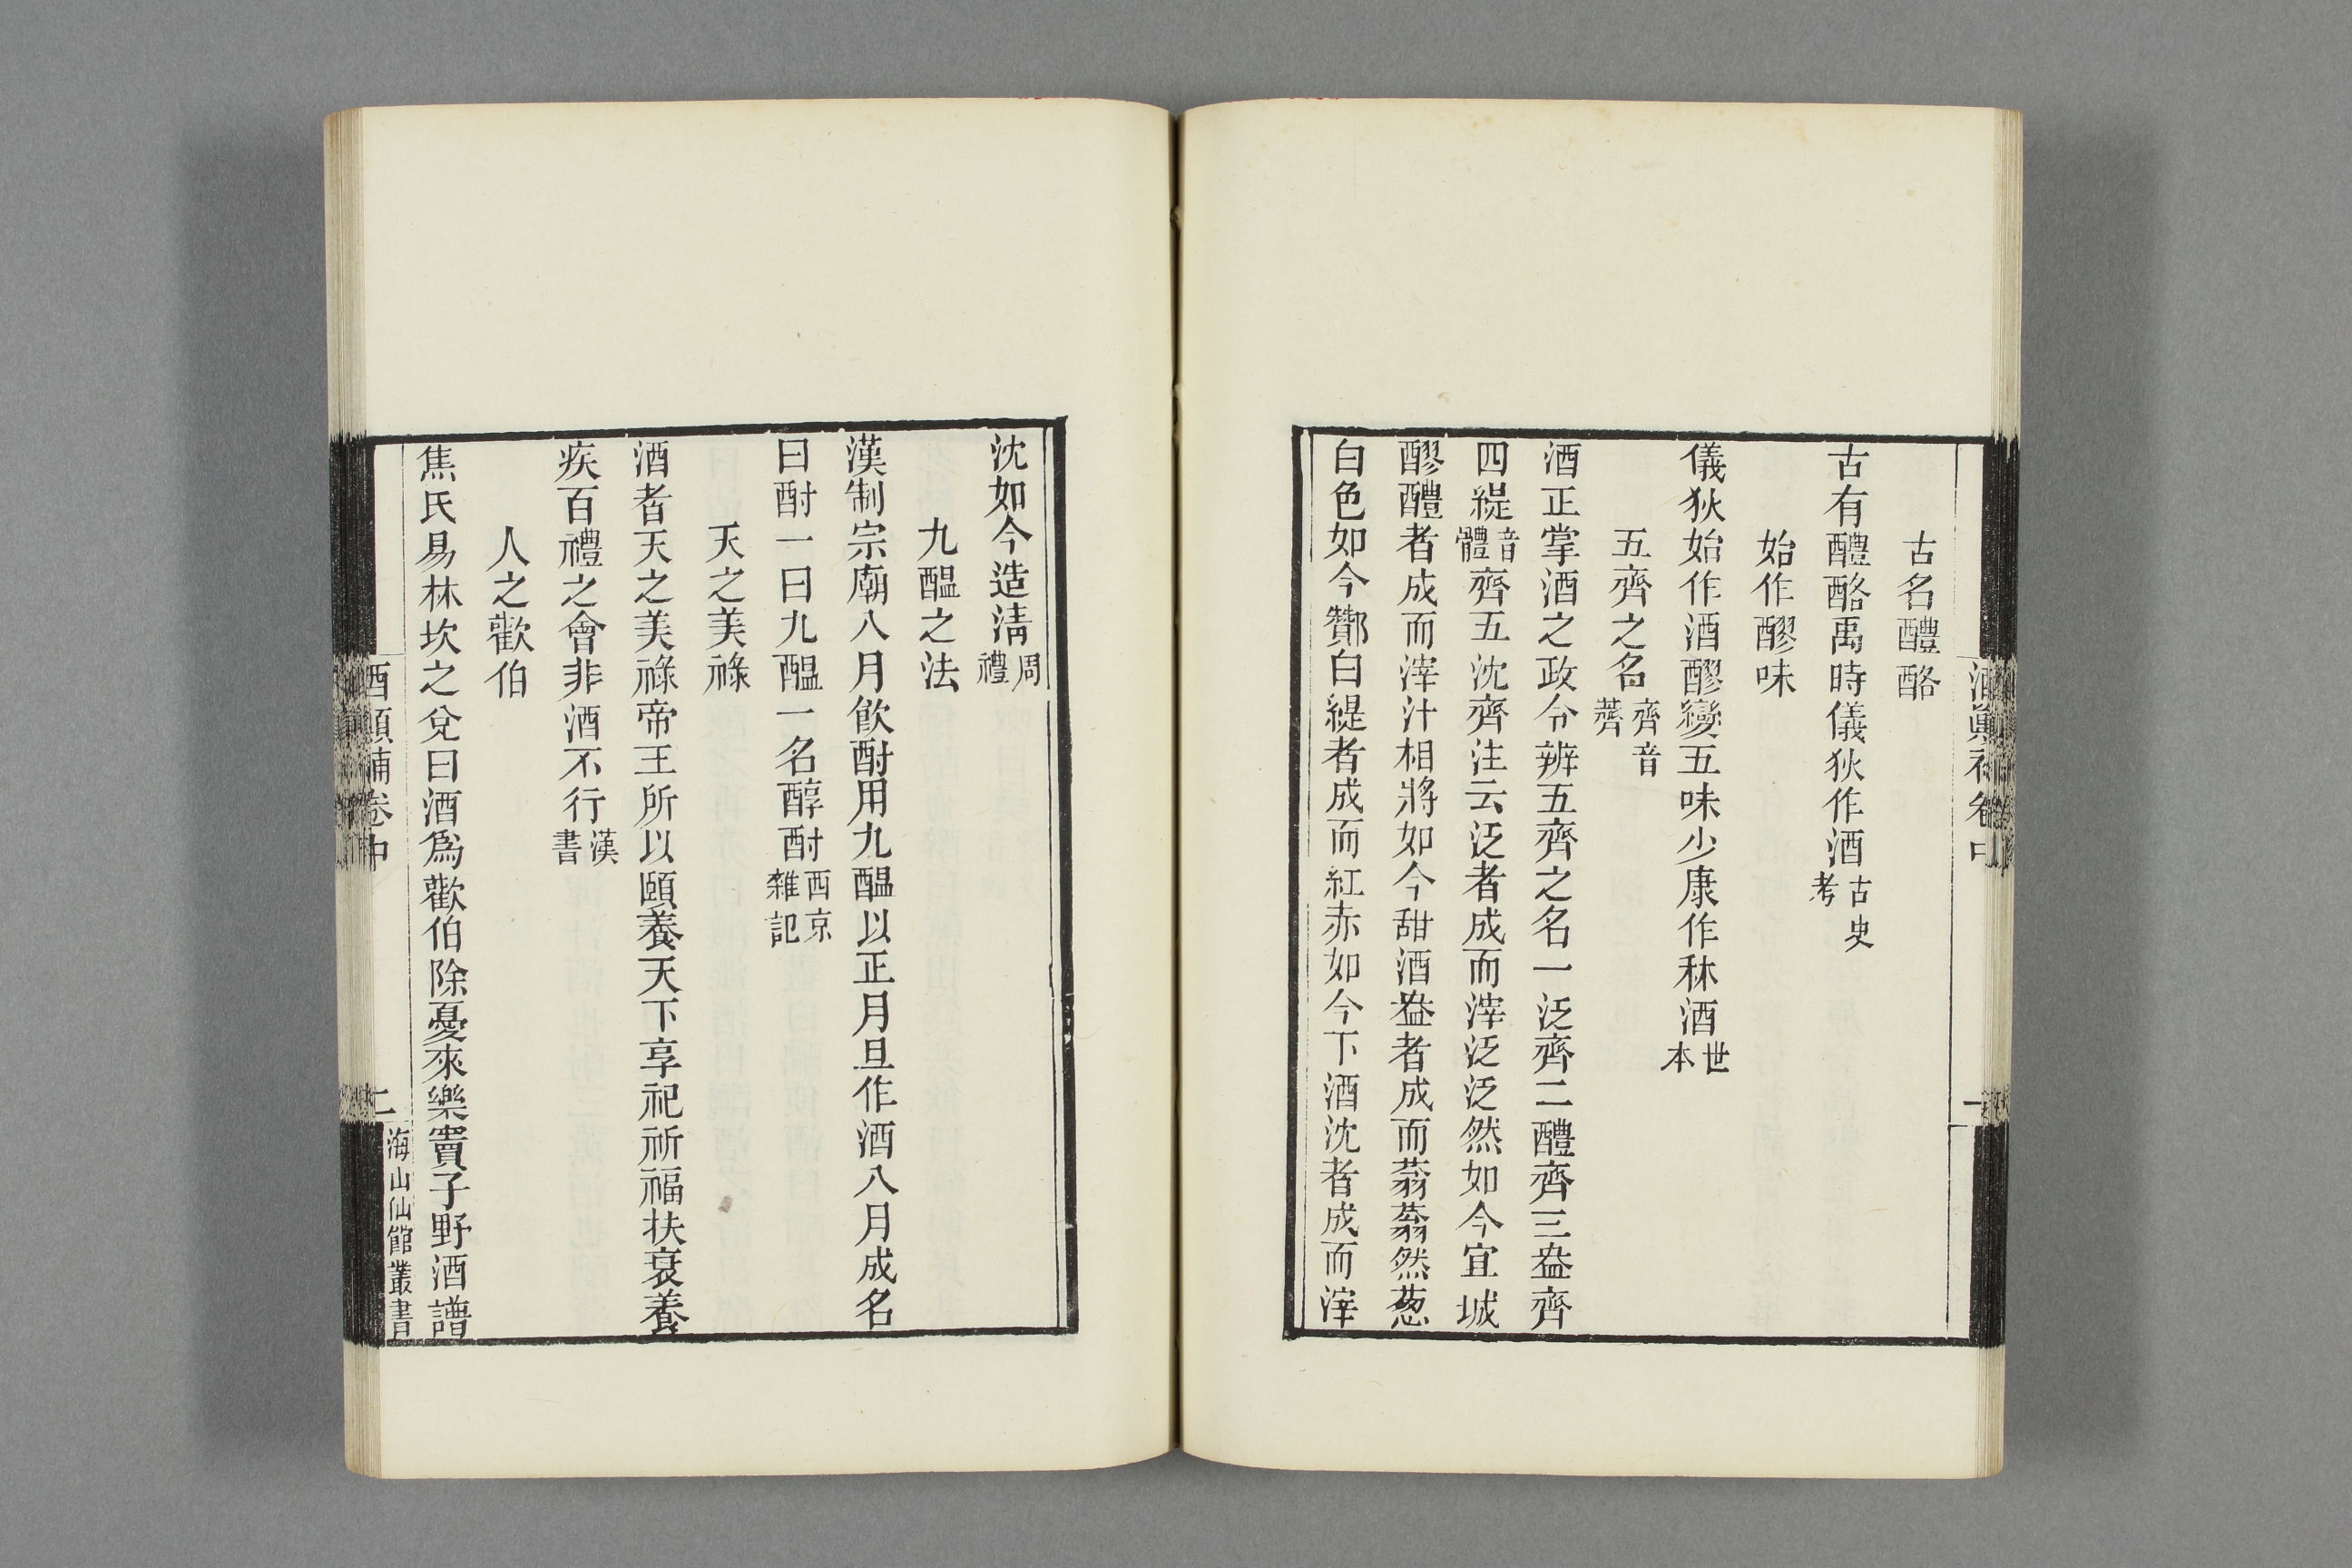 古名醴酪
古有醴酪禹時儀狄作酒古史考
始作醪味
儀狄始作酒醪變五味少康作秫酒世本
五齊之名齊音薺
酒正掌酒之政令辨五齊之名一泛齊二醴齊三盎齊
四緹音體齊五沈齊注云泛者成而滓泛泛然如今宜城
醪醴者成而滓汁相將如今甜酒盎者成而蓊蓊然葱
白色如今酇白緹者成而紅赤如今下酒沈者成而滓
沈如今造清周禮
九醞之法
漢制宗廟八月飲酎用九醞以正月旦作酒八月成名
曰酎一曰九醞一名醇酎西京雜記
天之美祿
酒者天之美祿帝王所以頤養天下享祀祈福扶衰養
疾百禮之會非酒不行漢書
人之歡伯
焦氏易林坎之兌曰酒爲歡伯除憂來樂竇子野酒譜
酒顚補卷中
二
海山仙館叢書